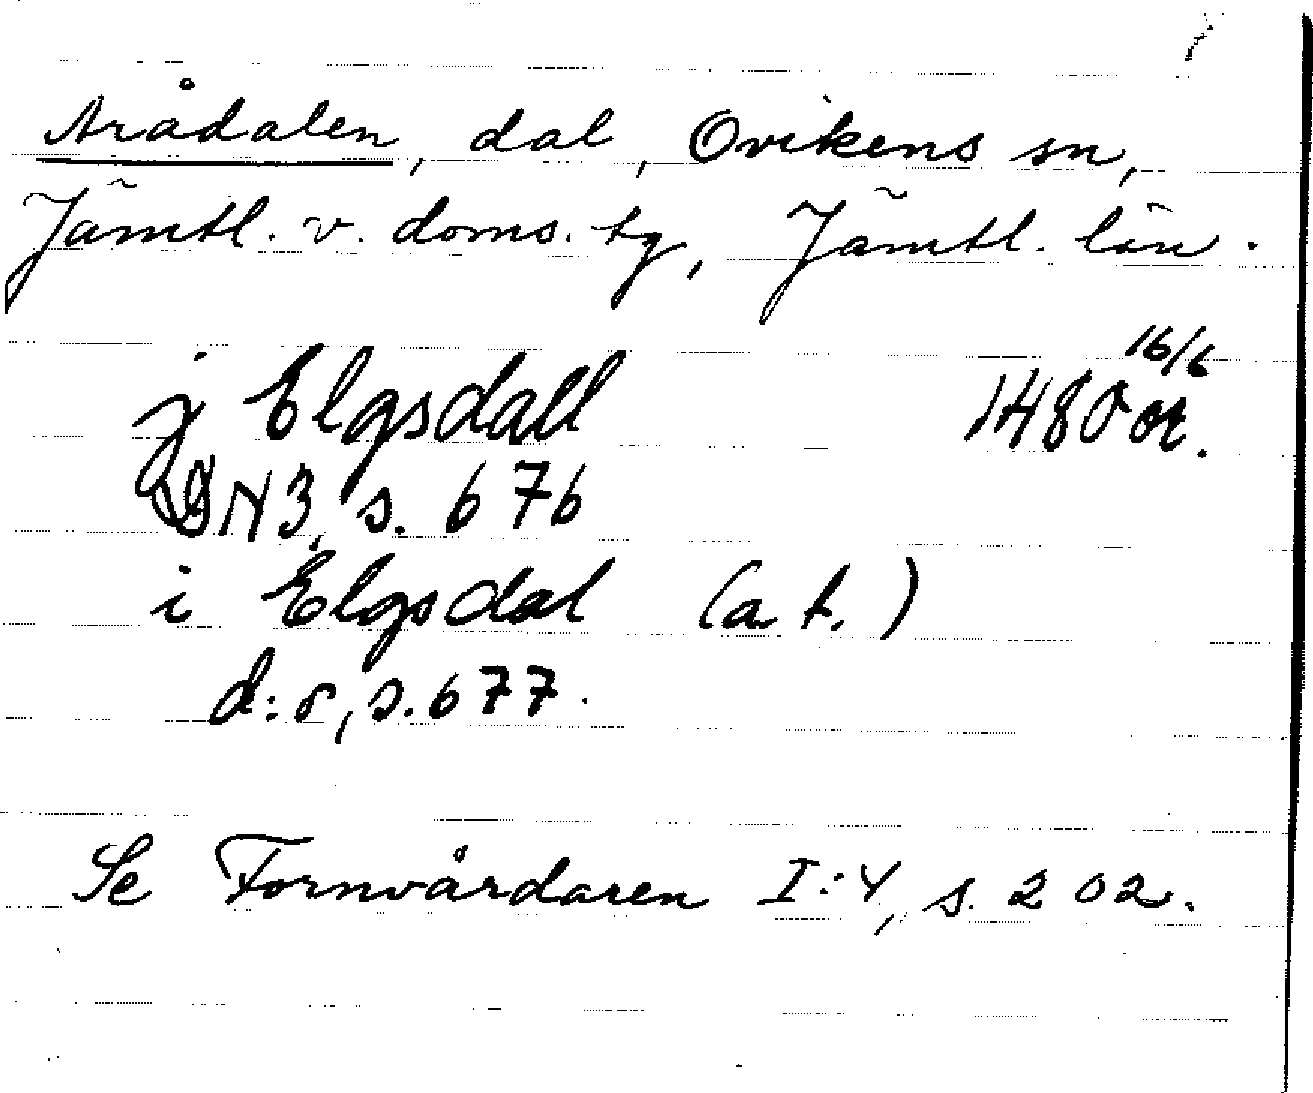 Arådalen, dal, Ovikens sn,
Jämtl. v. doms. tg, Jämtl. län.
j Elgsdall 16/6 1480 or.
DN 3, s. 676
i Elgsdal (a t.)
d:o, s. 677.
Se Fornvårdaren I:4, s. 202.